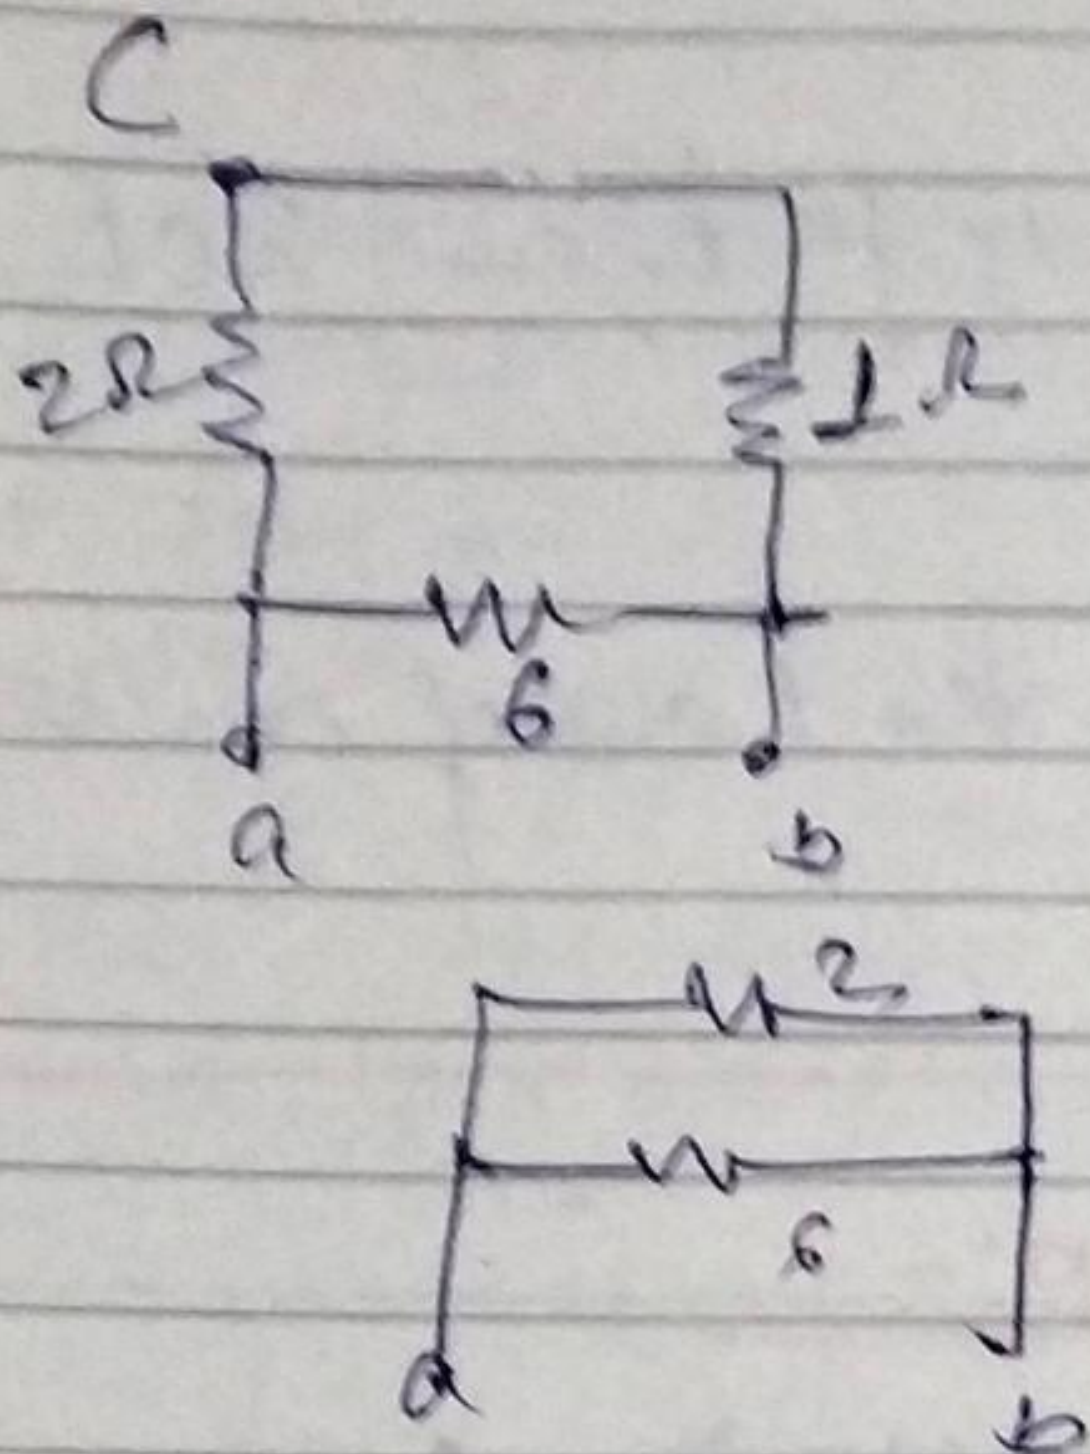 C
2Ω 1Ω
6
a b
2
6
a b